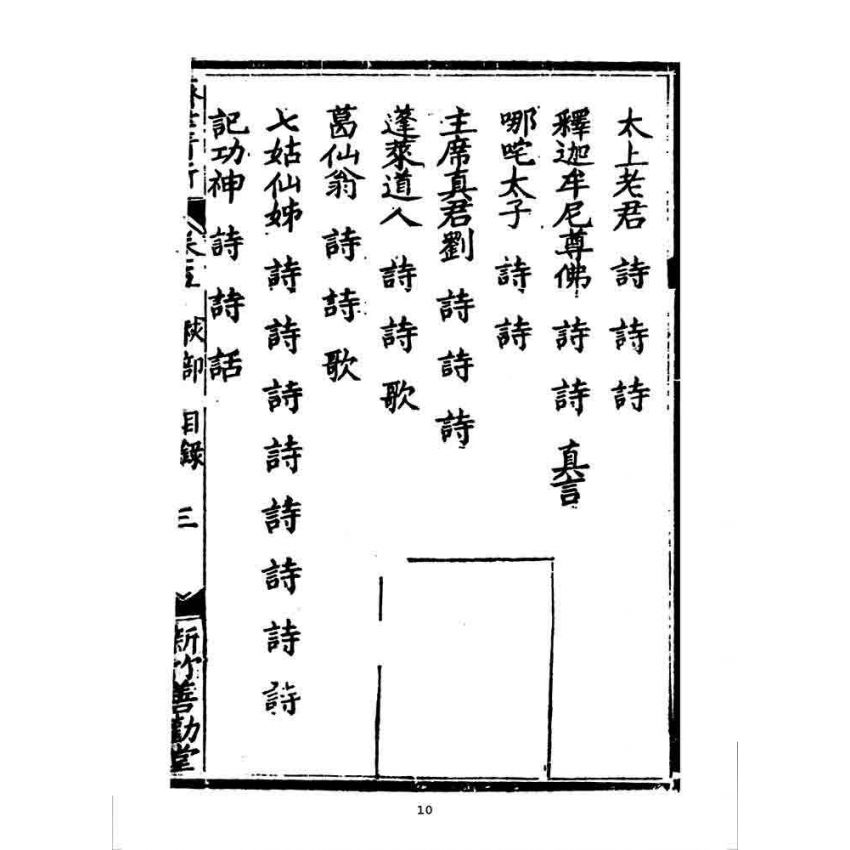 太上老君 詩 詩 詩
釋迦牟尼尊佛 詩 詩 真言
哪咤太子 詩 詩
主席真君劉 詩 詩 詩
蓬萊道人 詩 詩 歌
葛仙翁 詩 詩 歌
七姑仙姊 詩 詩 詩 詩 詩 詩 詩 詩
記功神 詩 詩 話
部 目錄 三
新竹善勸堂
10